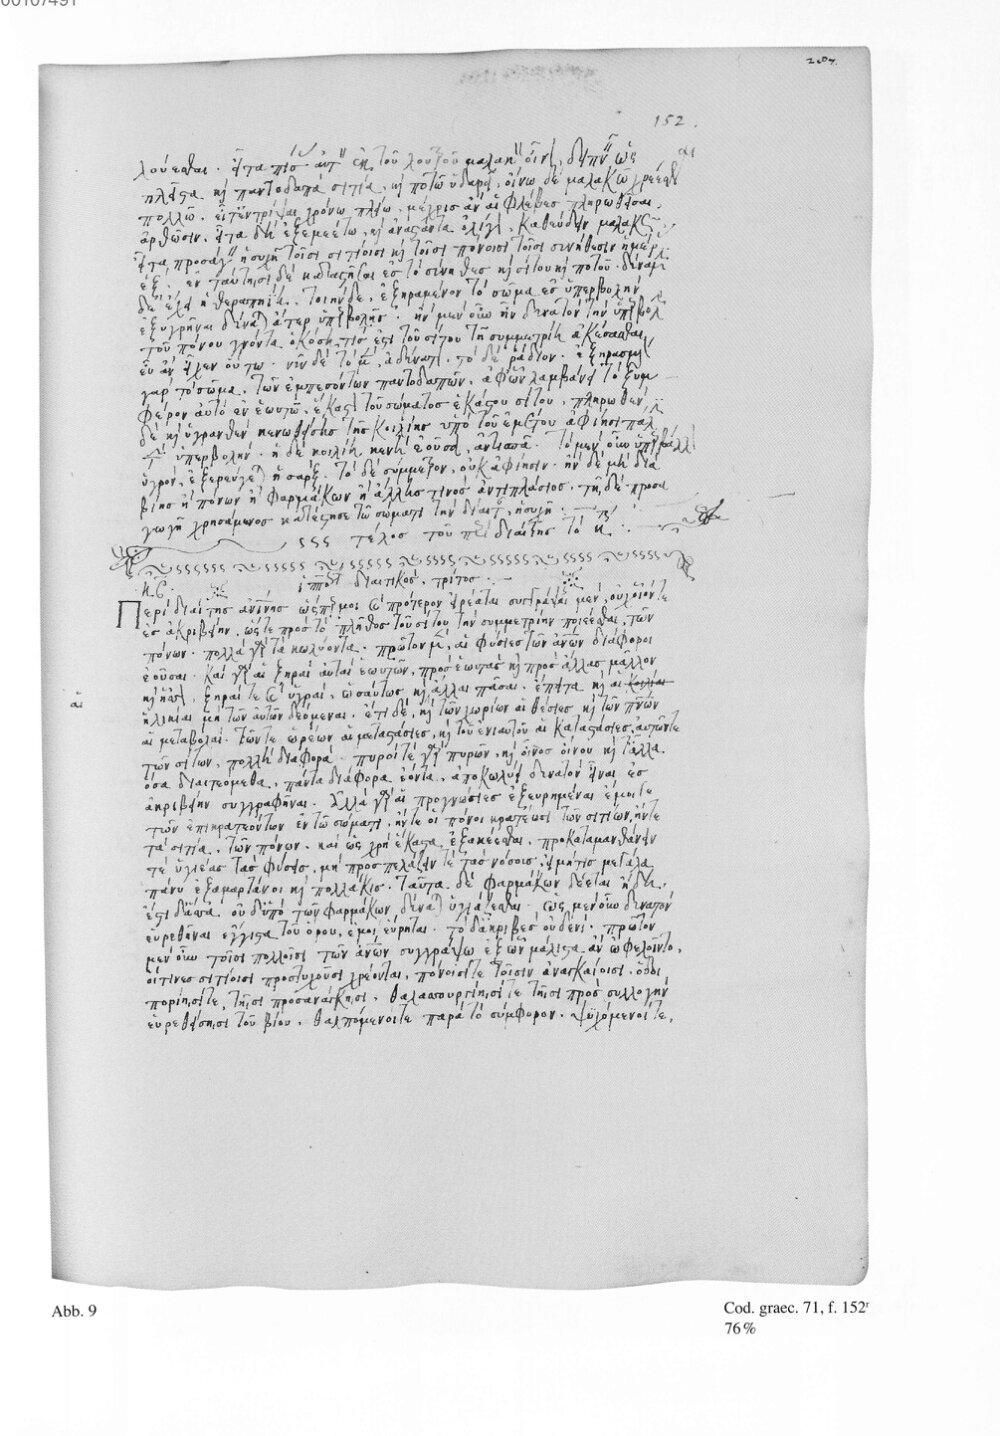 00107491
152.
λούεσθαι. εἶτα πίσαι αὐτὸν ἐκ τοῦ λουτροῦ μαλακὸν οἶνον, δειπνῆν ὡς
πλεῖστα καὶ παντοδαπὰ σιτία, καὶ ποτῶ ὑδαρεῖ, οἴνω δὲ μαλακῶ χρέεσθαι
αι
πολλῶ. εἶτ' ἐντρίψαι χρόνω πλείω, μέχρις ἂν αἱ φλέβες πληρωθεῖσαι
ἀρθῶσιν. εἶτα δὴ ἐξεμεέτω, καὶ ἀναστάντα ὀλίγον, καθεύδειν μαλακῶς
εἶτα προσάγειν ἡσυχῆ τοῖσι σιτίοισι καὶ τοῖσι πόνοισι τοῖσι συνήθεσιν ἡμέρας
ἕξ. ἐν ταύτῃσι δὲ καταστῆσαι ἐς τὸ σύνηθες καὶ σίτου καὶ ποτοῦ. δύναμιν
δὲ ἔχει ἡ θεραπηίη τοιήνδε. ἐξηραμένον τὸ σῶμα ἐς ὑπερβολὴν
ἐξυγρῆναι δύναται ἄτερ ὑπερβολῆς. ἢν μὲν οὖν ἦν δυνατὸν τὴν ὑπερβολὴν
τοῦ πόνου γνόντα ὁκόση τίς ἐστι τοῦ σίτου τῆ συμμετρίη ἀκέσασθαι
εὖ ἂν εἶχεν οὕτω. νῦν δὲ τὸ μὲν ἀδύνατον. τὸ δὲ ῥάδιον. ἐξηρασμένον
γὰρ τὸ σῶμα, τῶν ἐμπεσόντων παντοδαπῶν, ἀφ' ὧν λαμβάνει τὸ ξυμ
φέρον αὐτὸ ἐν ἑωυτῶ, ἕκαστον τοῦ σώματος ἑκάστου σίτου. πληρωθὲν
δὲ καὶ ὑγρανθὲν κενωθείσης τῆς κοιλίης ὑπὸ τοῦ ἐμέτου ἀφίησι πάλιν
τὴν ὑπερβολὴν. ἡ δὲ κοιλίη κενὴ ἐοῦσα, ἀντισπᾶ. τὸ μὲν οὖν ὑπερβάλλον
ὑγρὸν, ἐξερεύγεται ἡ σάρξ. τὸ δὲ σύμμετρον, οὐκ ἀφίησιν. ἢν δὲ μὴ διὰ
βίης ἢ πόνων ἢ φαρμάκων ἢ ἄλλης τινὸς ἀντισπάσιος. τῆ δὲ προσα
γωγῆ χρησάμενος κατέστησε τῶ σώματι τὴν δίαιταν ἡσυχῆ.
τέλος τοῦ περὶ διαίτης τὸ κε
κς. ἱπποκράτους διαιτικὸς, τρίτος.
Περὶ διαίτης ἀνθρωπίνης ὥσπερ μοι καὶ πρότερον εἴρεται συγγράψαι μὲν, οὐχ οἷόν τε
ἐς ἀκριβείην, ὥστε πρὸς τὸ πλῆθος τοῦ σίτου τὴν συμμετρίην ποιέεσθαι, τῶν
πόνων. πολλὰ γὰρ τὰ κωλύοντα. πρῶτον μὲν, αἱ φύσιες τῶν ἀνθρώπων διάφοροι
ἐοῦσαι. καὶ γὰρ αἱ ξηραὶ αὐταὶ ἑωυτῶν, πρὸς ἑωυτὰς καὶ πρὸς ἄλλας μᾶλλον
καὶ ἧσσον. ξηραί τε καὶ ὑγραὶ, ὡσαύτως καὶ ἄλλαι πᾶσαι. ἔπειτα καὶ αἱ κοιλίαι
αἱ
ἡλικίαι μὴ τῶν αὐτῶν δεόμεναι. ἔτι δὲ, καὶ τῶν χωρίων αἱ θέσιες καὶ τῶν πνευμάτων
αἱ μεταβολαί. τῶν τε ὡρέων αἱ μεταστάσιες, καὶ τοῦ ἐνιαυτοῦ αἱ καταστάσιες, αὐτῶν τε
τῶν σίτων, πολλὴ διαφορά. πυροί τε γὰρ πυρῶν, καὶ οἶνος οἴνου καὶ τἆλλα
ὅσα διαιτεόμεθα, πάντα διάφορα ἐόντα, ἀποκωλύει δυνατὸν εἶναι ἐς
ἀκριβείην συγγραφῆναι. ἀλλὰ γὰρ αἱ προγνώσιες ἐξευρημέναι ἐμοί τε
τῶν ἐπικρατεόντων ἐν τῶ σώματι, ἤν τε οἱ πόνοι κρατέωσι τῶν σιτίων, ἤν τε
τὰ σιτία, τῶν πόνων. καὶ ὡς χρὴ ἕκαστα ἐξακέεσθαι. προκαταμανθάνειν
τε ὑγιέας τὰς φύσις, μὴ προσπελάζειν τε τὰς νόσους. εἰ μή τις μεγάλα
πάνυ ἐξαμαρτάνοι καὶ πολλάκις. ταῦτα δὲ φαρμάκων δέεται ἤδη.
ἔστι δ' ἅσσα οὐδ' ὑπὸ τῶν φαρμάκων δύναται ὑγιάζεσθαι. ὡς μὲν οὖν δυνατὸν
εὑρεθῆναι ἔγγιστα τοῦ ὅρου, ἐμοὶ εὕρηται. τὸ δ' ἀκριβὲς οὐδενί. πρῶτον
μὲν οὖν τοῖσι πολλοῖσι τῶν ἀνθρώπων συγγράψω ἐξ ὧν μάλιστα ἂν ὠφελοῖντο,
οἵτινες σιτίοισι προστυχοῦσι χρέονται, πόνοισί τε τοῖσιν ἀναγκαίοισι. ὁδοι
πορίῃσί τε, τῆσι πρὸς ἀνάγκῃσι. θαλασσουργίῃσί τε τῆσι πρὸς συλλογὴν
εὑρεθείσῃσι τοῦ βίου. θαλπόμενοί τε παρὰ τὸ σύμφορον. ψυχόμενοί τε,
Abb. 9
Cod. graec. 71, f. 152r
76%